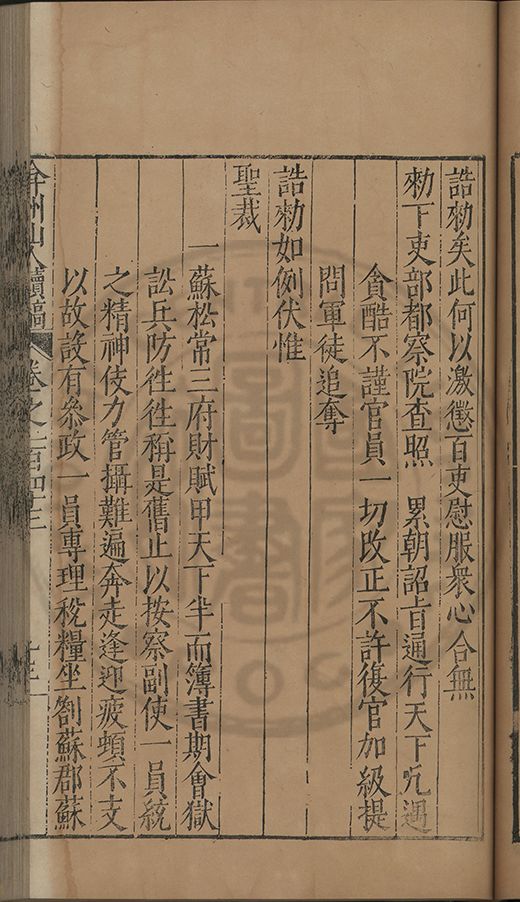 誥勑矣此何以激懲百吏慰服衆心合無
勑下吏部都察院查照　累朝詔旨通行天下凢遇
貪酷不謹官員一切改正不許復官加級提
問軍徒追奪
誥勑如例伏惟
聖裁
一蘇松常三府財賦甲天下半而簿書期會獄
訟兵防徃徃稱是舊止以按察副使一員統
之精神伎力管攝難遍奔走逢迎疲頓不支
以故設有叅政一員專理稅糧坐劄蘇郡蘇
弇州山人續稿 卷之一百四十三